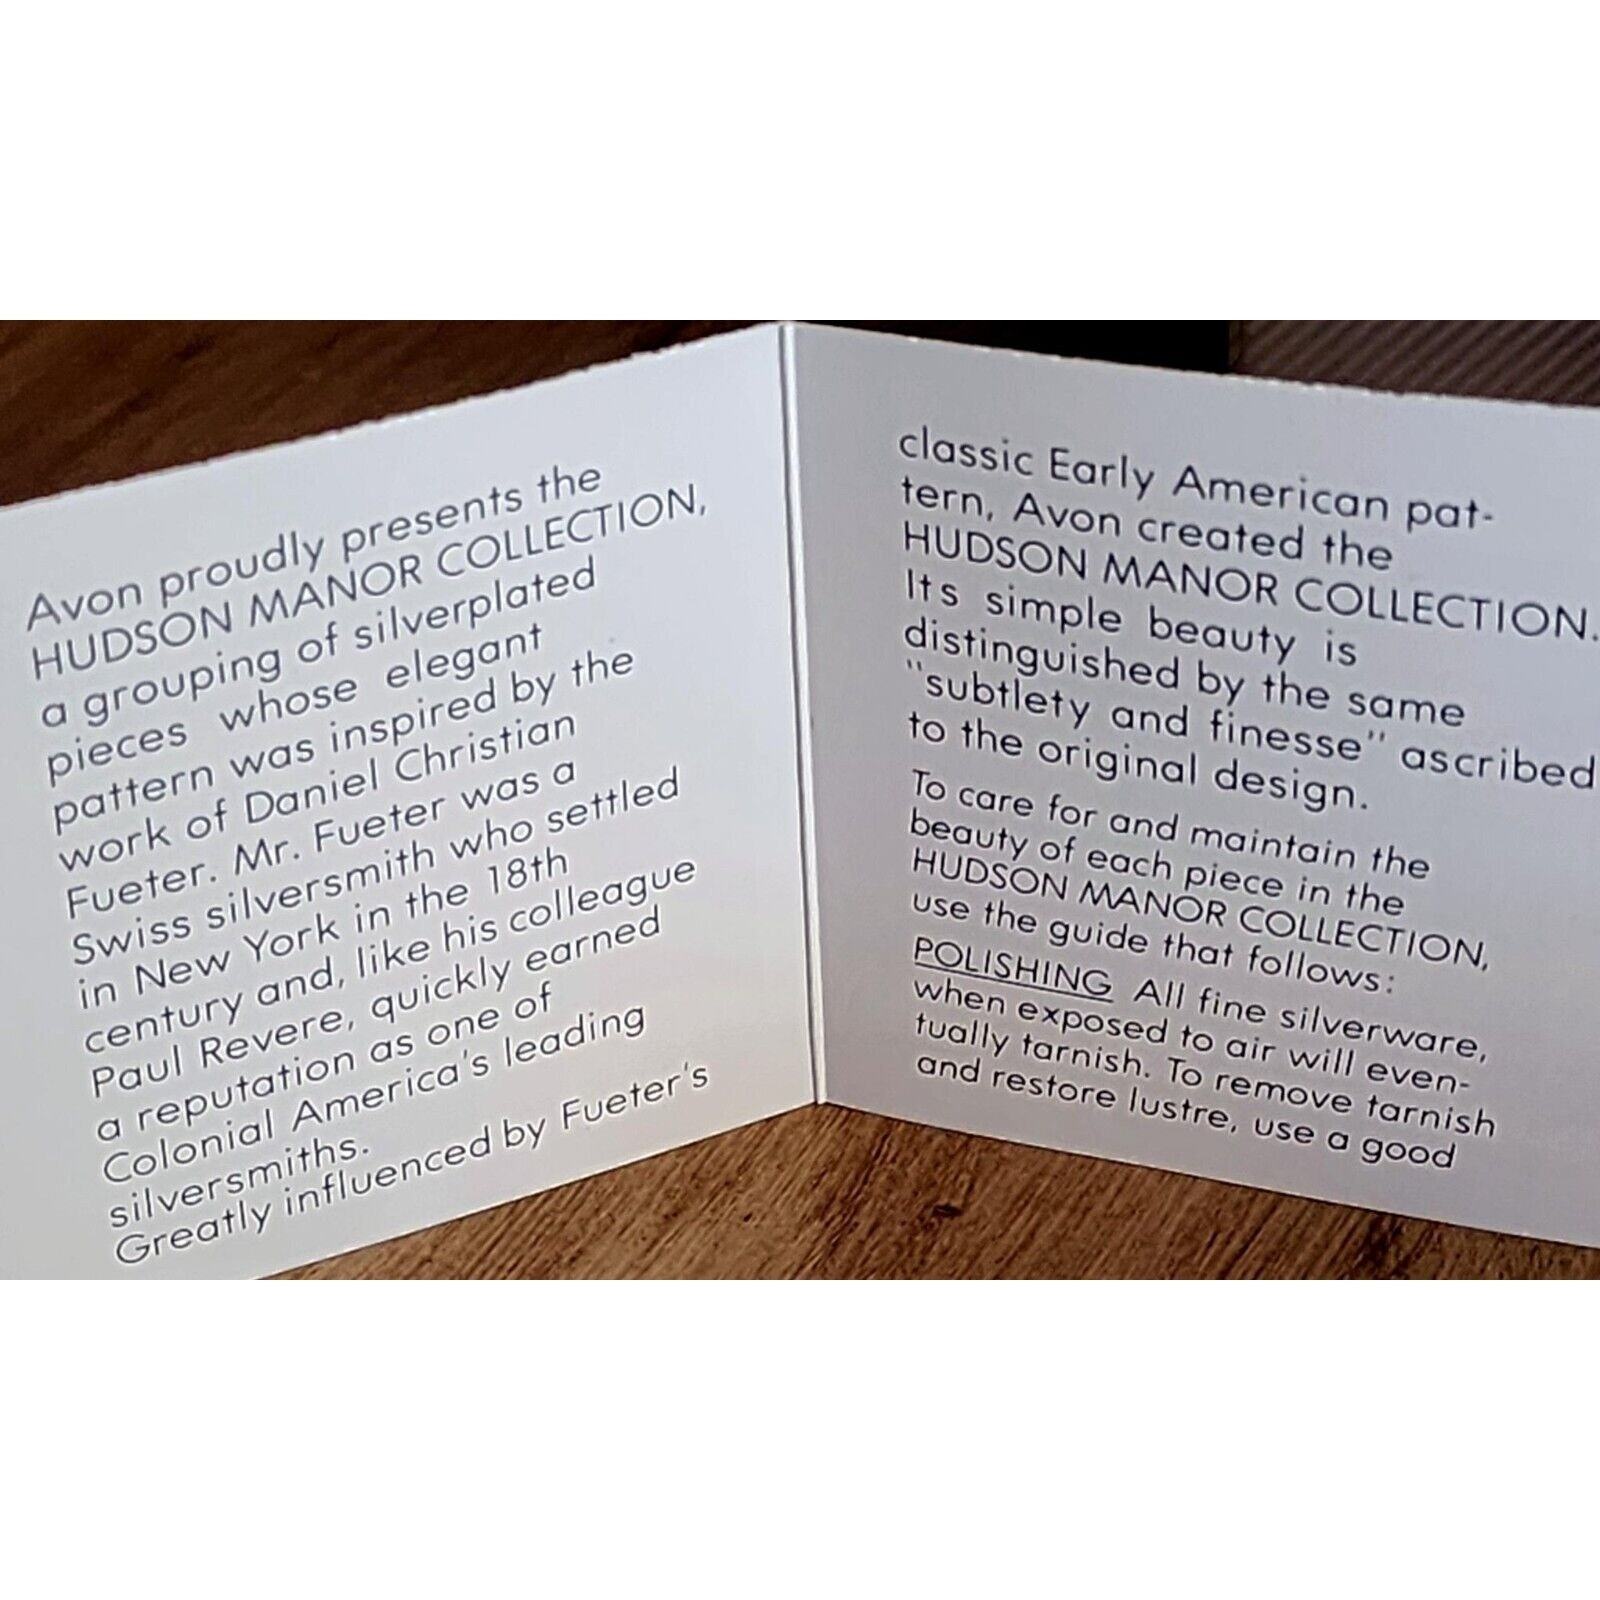 Avon proudly presents the
HUDSON MANOR COLLECTION,
a grouping of silverplated
pieces whose elegant
pattern was inspired by the
work of Daniel Christian
Fueter. Mr. Fueter was a
Swiss silversmith who settled
in New York in the 18th
century and, like his colleague
Paul Revere, quickly earned
a reputation as one of
Colonial America's leading
silversmiths.
Greatly influenced by Fueter's
classic Early American pat-
tern, Avon created the
HUDSON MANOR COLLECTION.
Its simple beauty is
distinguished by the same
"subtlety and finesse" ascribed
to the original design.
To care for and maintain the
beauty of each piece in the
HUDSON MANOR COLLECTION,
use the guide that follows:
POLISHING All fine silverware,
when exposed to air will even-
tually tarnish. To remove tarnish
and restore lustre, use a good